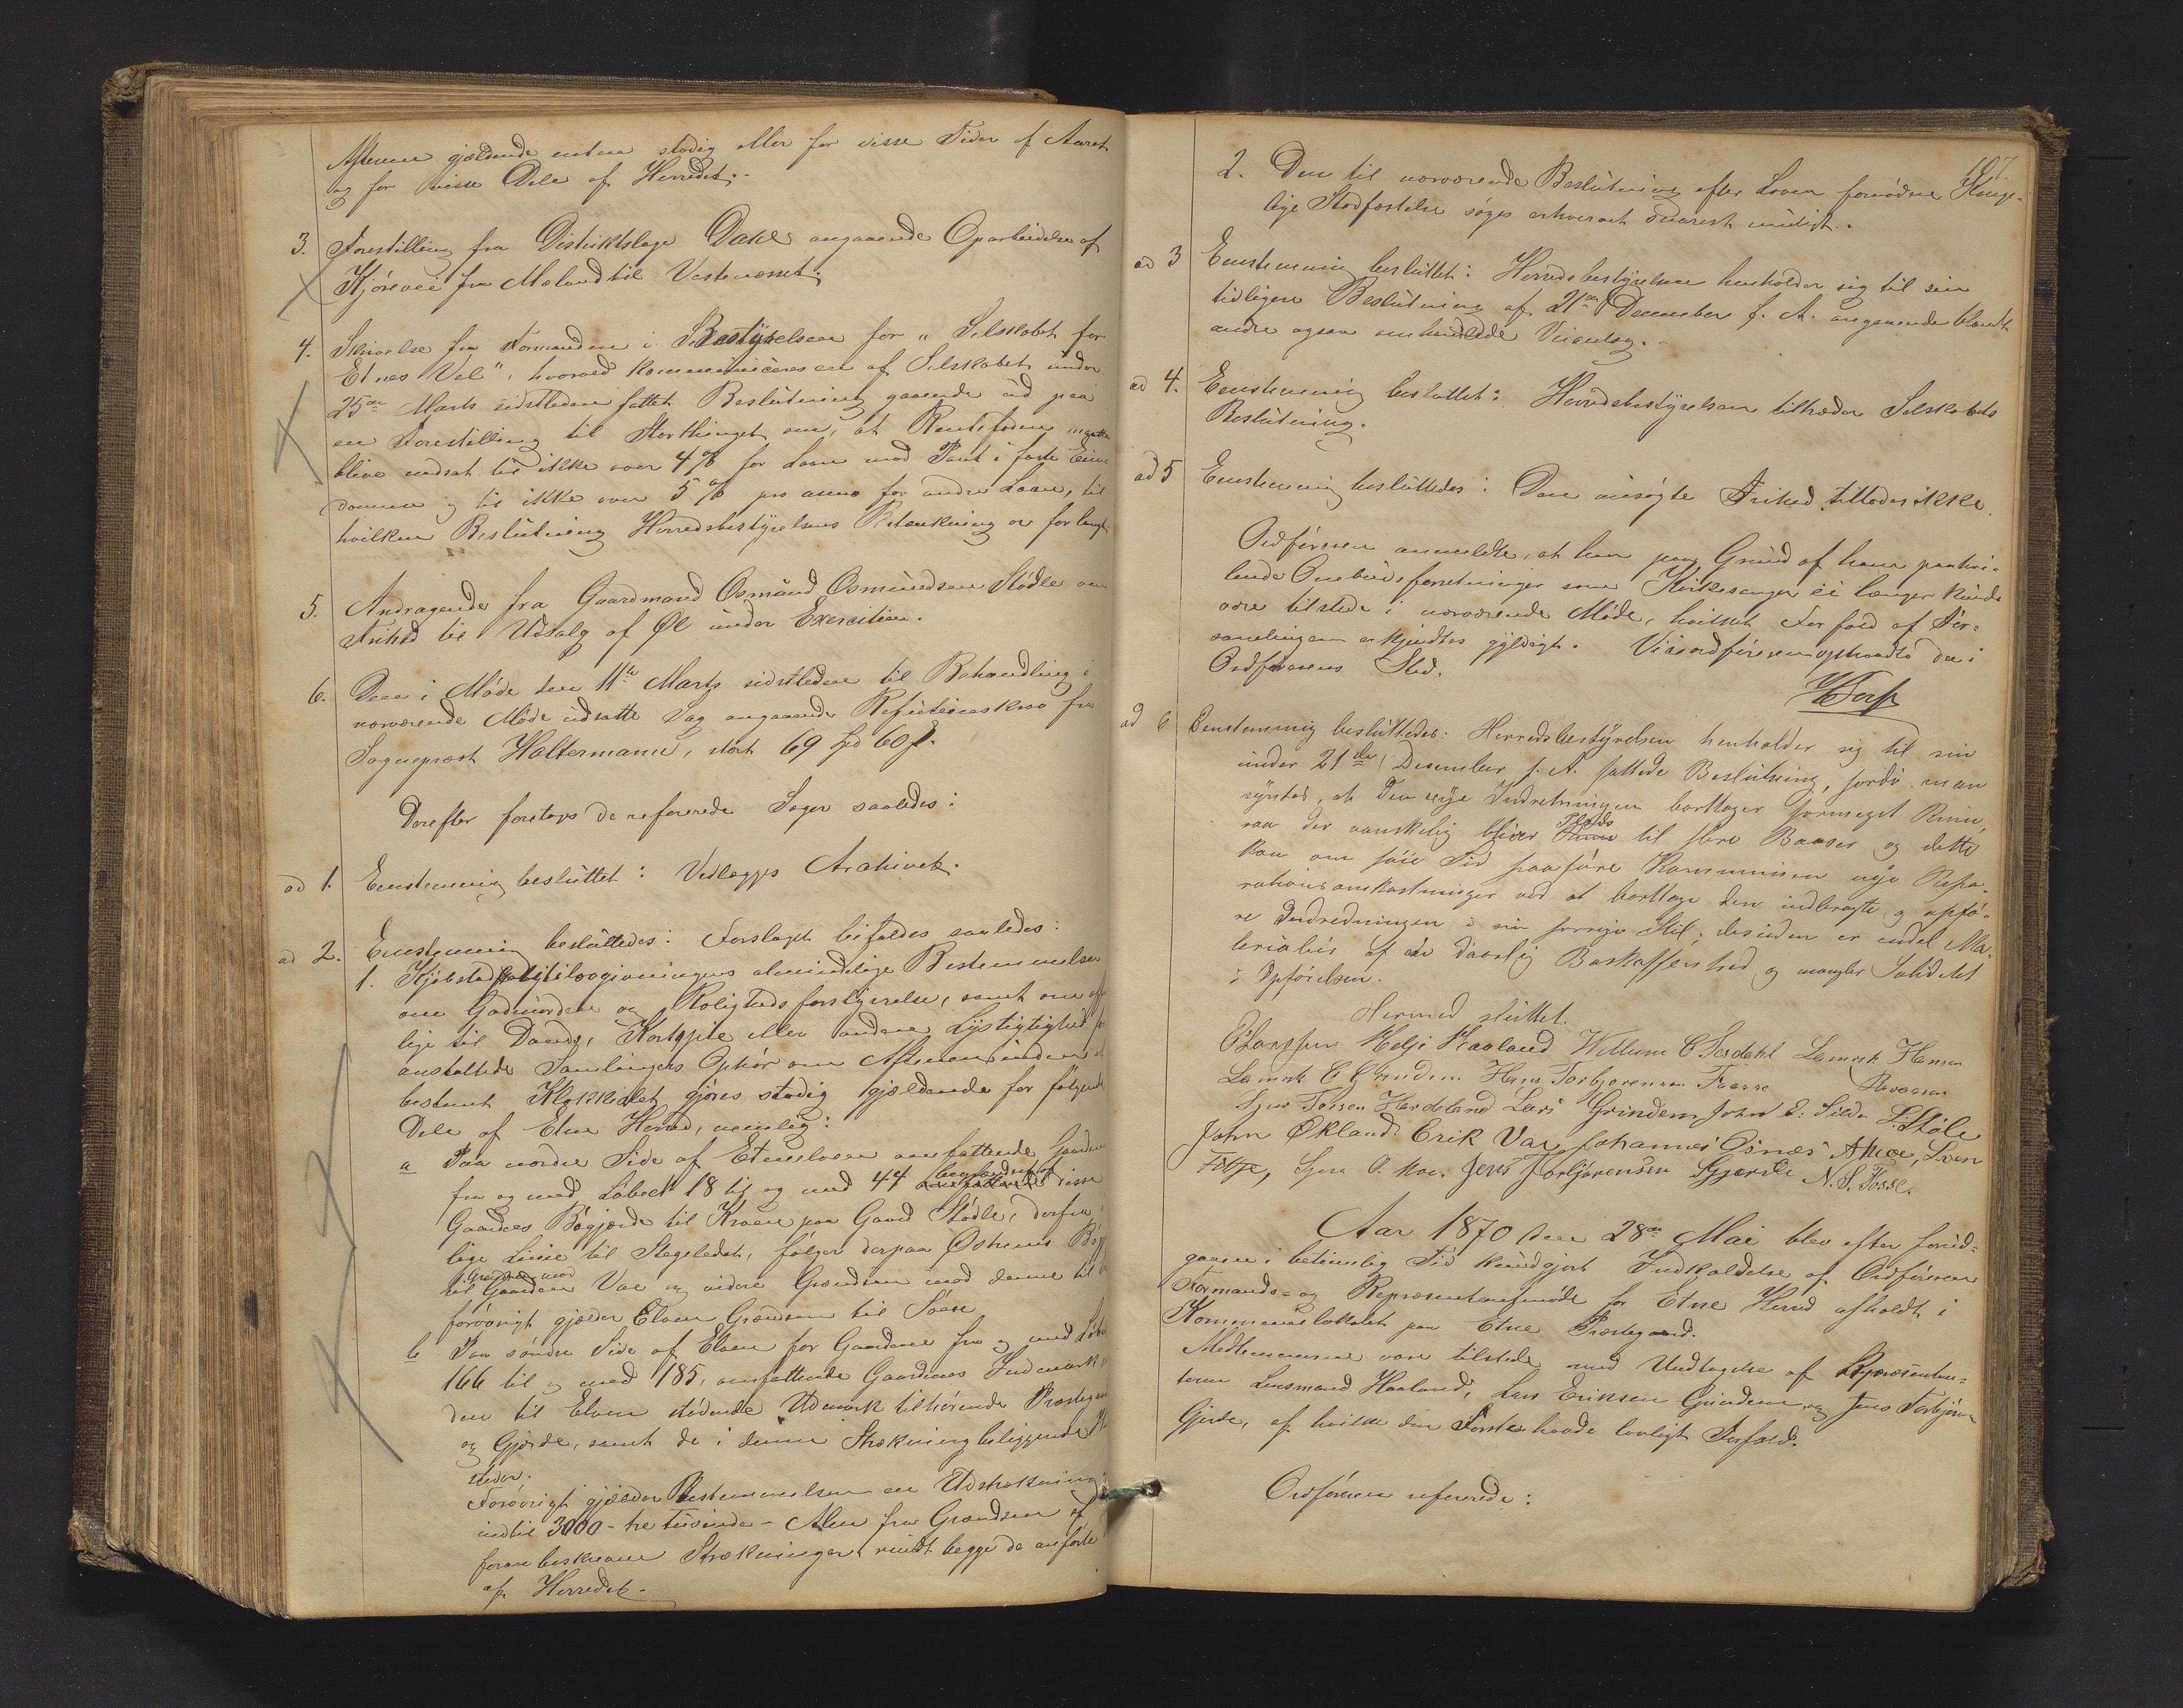 Aftenen gjældende enten stadig eller for visse Tider af Aaret
og for visse Dele af Herredet.-
3. Forestilling fra Distriktslæge Dahl angaaende Oparbeidelse af
Kjörevei fra Mæland til Vestenæsset.
4. Skrivelse fra Formanden i Bestyrelsen for "Selskabet for
Etnes Vel", hvorved kommuniceres en af Selskabet under
25de Marts sidstleden fattet Beslutning gaaende ud paa
en Forestilling til Storthinget om, at Rentefoden maatte
blive nedsat til ikke over 4% for Laan mod Pant i faste Eien-
domme og til ikke over 5% pro anno for andre Laan, til
hvilken Beslutning Herredsbestyrelsens Betænkning er forlangt.
5. Andragende fra Gaardmand Osmund Osmundsen Stödle om
Frihed til Udsalg af Øl under Exercitien.
6. Den i Möde den 11te Marts sidstleden til Behandling i
nærværende Möde udsatte Sag angaaende Refusionskrav fra
Sognepræst Haltermann, stort 69 Spd 60 ß.
Derefter foretoges de refererede Sager saaledes:
ad 1. Eenstemmig besluttet: Vedlægges Archivet.
ad 2. Eenstemmig besluttedes: Forslaget bifaldes saaledes:
1. Kjöbstadpolitilovgivningens almindelige Bestemmelser
om Gadeuorden og Roligheds forstyrrelse, samt om offent
lige til Dands, Kortspil eller anden Lystighed
anstaltede Samlingers Ophör om Aftenen inden et
bestemt Klokkeslet gjöres stadig gjældende for fölgende
Dele af Etne Herred, nemlig:
a Paa nordre Side af Etneelven omfattende Gaardene
fra og med Löbeno 18 til og med 44 begrændset af disse
Gaardes Bögjerde til Kraaen paa Gaard Stödle, derfra i
lige Linie til Stegeledet, fölger derpaa Østrems Bög
til Grændsen mod Vae og videre Grændsen mod denne til
forövrigt gjælder Elven Grændsen til Söen
b Paa söndre Side af Elven for Gaardene fra og med Löbe
166 til og med 185, omfattende Gaardenes Indmark
den til Elven stödende Udmark tilhörende Præstegaard
og Gjerde, samt de i denne Strækning beliggende
steder.
Forövrigt gjælder Bestemmelsen en Udstrækning
indtil 3000 - tre tusinde - Alen fra Grændsen af
foran beskrevne Strækninger rundt begge de anförte
af Herredet.-
107.
2. Den til nærværende Beslutning efter Loven fornödne Konge-
lige Stadfæstelse söges erhvervet snarest muligt.
ad 3 Eenstemmig besluttet: Herredsbestyrelsen henholder sig til sin
tidligere Beslutning af 21de December f. A. angaaende blandt
andre ogsaa omhandlede Veianlæg.-
ad 4. Eenstemmig besluttet: Herredsbestyrelsen tiltræder Selskabets
Beslutning.
ad 5 Eenstemmig besluttedes: Den ansögte Frihed tillades ikke.
Ordföreren anmeldte, at han paa Grund af ham paahvi-
lende Ombudsforretninger som Kirkesanger ei længer kunde
være tilstede i nærværende Möde, hvilket Forfald af For-
samlingen erkjendtes gyldigt. Viceordföreren opraabtes da i
Ordförerens Sted.
Torp
ad 6 Eenstemmig besluttedes: Herredsbestyrelsen henholder sig til sin
under 21de December f. A. fattede Beslutning, fordi man
synes, at Den nye Indretningen borttager formeget Rum,
saa der vanskelig bliver Plads til flere Baaser og dette
kan om föie Tid paaföre Kommunen nye Repa-
rationsomkostninger ved at borttage den indbragte og opfö-
re Indredningen i sin forrige Stil; desuden er endel Ma-
terialier af en daarlig Beskaffenhed og mangler Soliditet
i Opförelsen.
Hermed sluttet.
Helje Haaland Willum C Serdahl Lamerk Hansen
Lamerk E Grindem Hans Torbjørensen Frette
Sjur Tørssen Hardeland Lars Grindem John E: Silde L: Støle
John Økland. Erik Vae Johannes Osnes A Moe, Sven
Fitje, Sjur O. Moe. Jens Torbjørensen Gjerde N. S. Fosse.
Aar 1870 den 28de Mai blev efter forud-
gaaen i betimelig Tid kundgjort Indkaldelse af Ordföreren
Formands- og Repræsentantmöde for Etne Herred afholdt i
Kommunelokalet paa Etne Præstegaard.
Medlemmerne vare tilstede med Undtagelse af Repræsentan-
terne Lensmand Haaland, Lars Eriksen Grindem og Jens Torbjörns
Gjerde, af hvilke den Förste havde lovligt Forfald.
Ordföreren refererede: